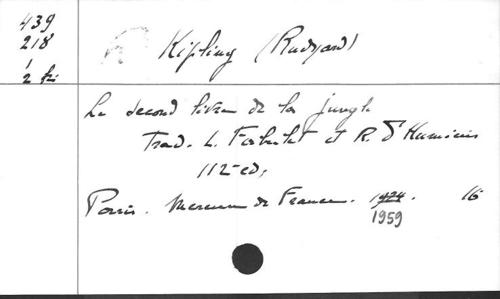 439
218
1
2
Kipling (Rudyard)
Le second livre de la jungle
Trad. L. Fabulet et R. d'Humières
112e ed,
Paris. Mercure de France. 1924. 16
1959